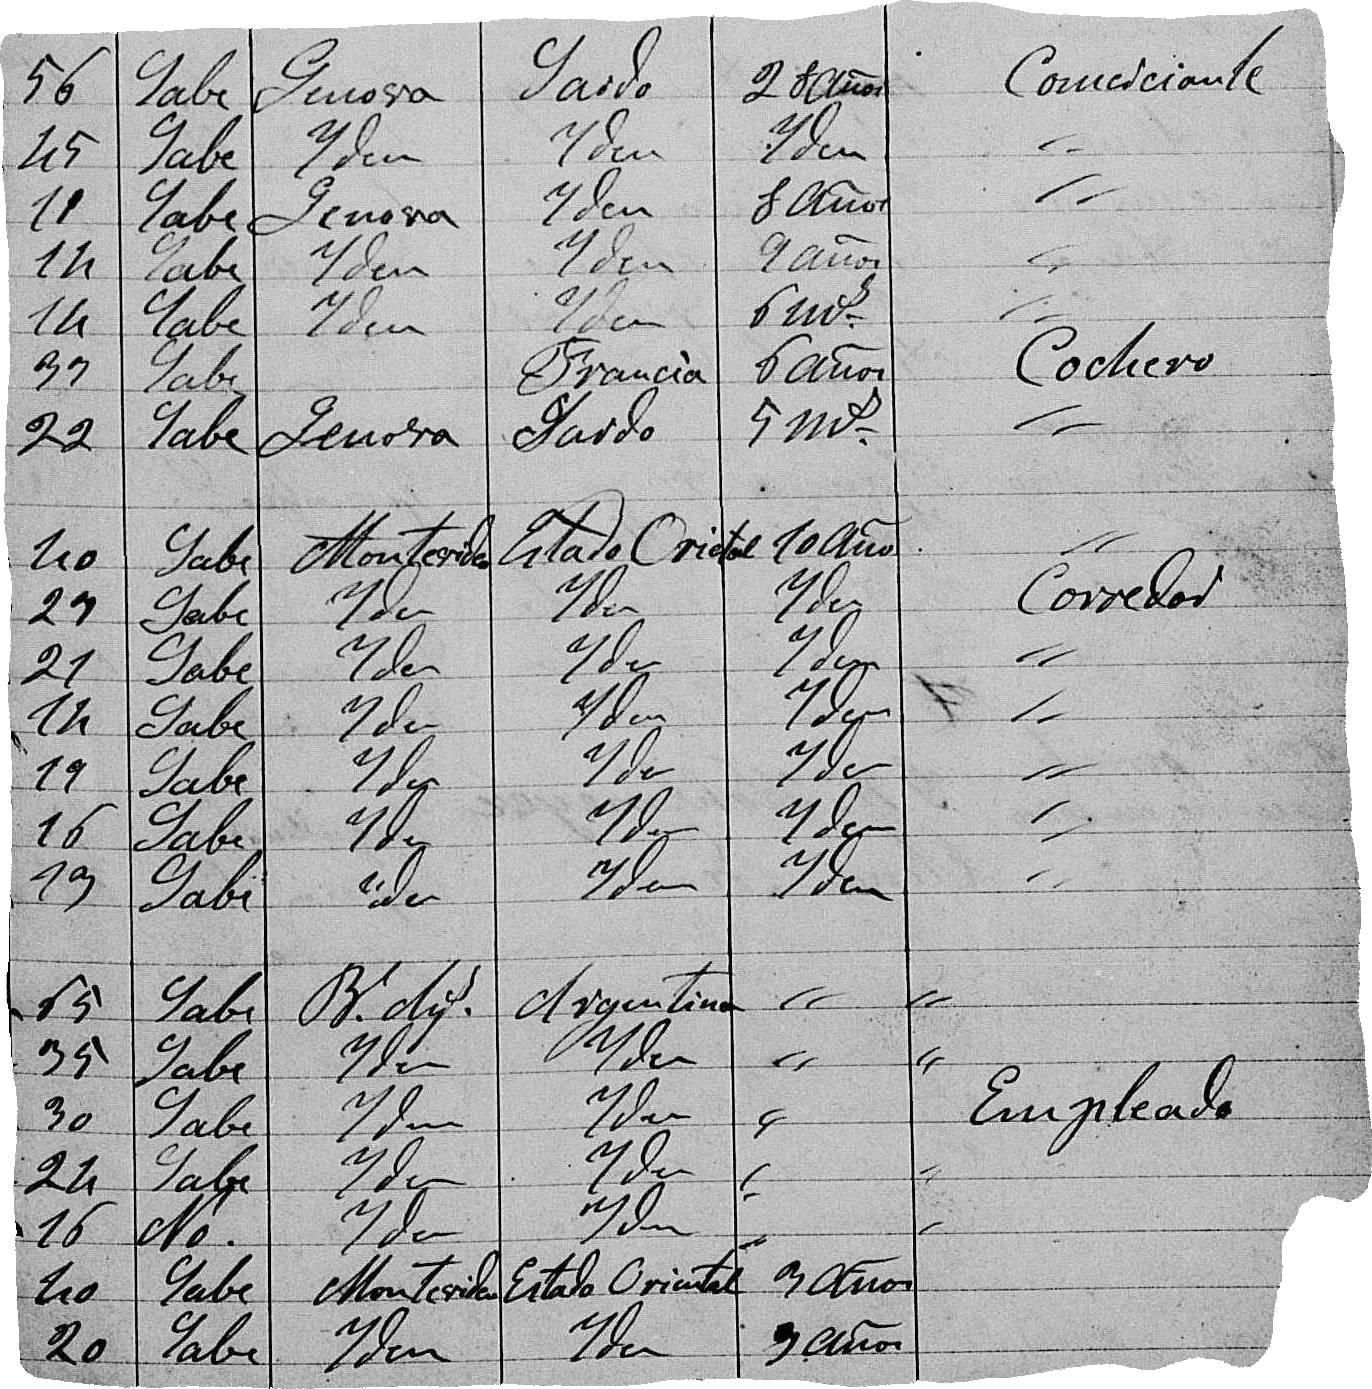 56 Sabe Genova Sardo 28 años Comerciante
45 Sabe Yden Yden Yden "
11 Sabe Genova Yden 8 años "
14 Sabe Yden Yden 9 años "
14 Sabe Yden Yden 6 ms. "
37 Sabe Francia 6 años Cochero
22 Sabe Genova Sardo 5 ms. "
40 Sabe Montevideo Estado Orietal 10 año "
27 Sabe Yden Yden Yden Corredor
21 Sabe Yden Yden Yden "
14 Sabe Yden Yden Yden "
19 Sabe Yden Yden Yden "
16 Sabe Yden Yden Yden "
13 Sabe Yden Yden Yden "
65 Sabe Argentina " "
35 Sabe Yden Yden " "
30 Sabe Yden Yden " Empleado
24 Sabe Yden Yden " "
16 No. Yden Yden " "
40 Sabe Montevideo Estado Oriental 3 años
20 Sabe Yden Yden 3 años